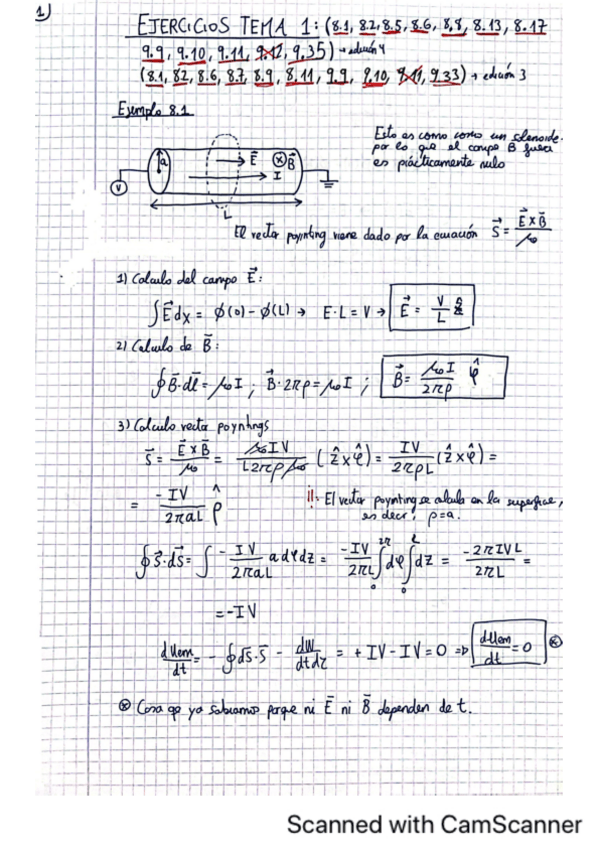 1)
EJERCICIOS TEMA 1: (8.1, 8.2, 8.5, 8.6, 8.8, 8.13, 8.17
9.9, 9.10, 9.11, 9.12, 9.35) → edición 4
(8.1, 8.2, 8.6, 8.7, 8.9, 8.11, 9.9, 9.10, 9.11, 9.33) → edición 3
Ejemplo 8.1
Esto es como como un solenoide.
por lo que el campo B fuera
es prácticamente nulo
a E⃗ ⊗B⃗
I
V
L
El vector poynting viene dado por la ecuación S⃗ = E⃗ x B⃗ / μ₀
1) Calculo del campo E⃗:
∫E⃗dx = ϕ(0) - ϕ(L) → E·L = V → E⃗ = V/L ẑ
2) Calculo de B⃗:
∮B⃗·dl⃗ = μ₀I ; B⃗·2πρ = μ₀I ; B⃗ = μ₀I/2πρ φ̂
3) Calculo vector poyntings
S⃗ = E⃗ x B⃗ / μ₀ = μ₀IV / L2πρμ₀ (ẑ x φ̂) = IV / 2πρL (ẑ x φ̂) =
= -IV / 2πaL ρ̂ !!. El vector poynting se calcula en la superficie,
es decir, ρ=a.
∮S⃗·dS⃗ = ∫ -IV / 2πaL a dφ dz = -IV / 2πL ∫₀^2π dφ ∫₀^L dz = -2πIVL / 2πL =
= -IV
dUem/dt = - ∮dS⃗·S⃗ - dW/dtdz = + IV - IV = 0 ⇒ dUem/dt = 0 ⊛
⊛ Cosa qe ya sabiamos porque ni E⃗ ni B⃗ dependen de t.
Scanned with CamScanner